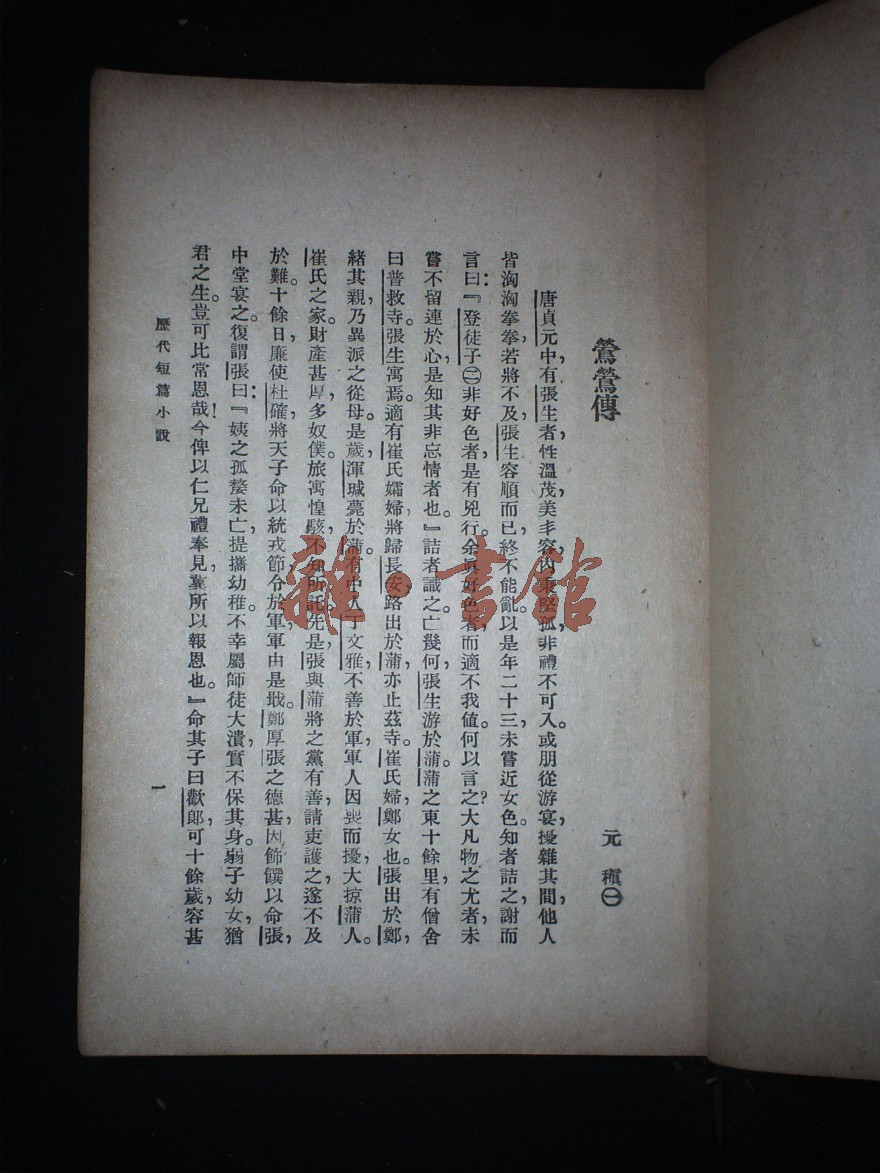 鶯鶯傳
元稹㊀
唐貞元中,有張生者,性溫茂,美丰容,內秉堅孤,非禮不可入。或朋從游宴,擾雜其間,他人
皆洶洶拳拳,若將不及,張生容順而已,終不能亂。以是年二十三,未嘗近女色。知者詰之,謝而
言曰:『登徒子㊁非好色者,是有兇行。余眞好色者,而適不我値。何以言之?大凡物之尤者,未
嘗不留連於心,是知其非忘情者也。』詰者識之。亡幾何,張生游於蒲。蒲之東十餘里,有僧舍
曰普救寺,張生寓焉。適有崔氏孀婦,將歸長安,路出於蒲,亦止茲寺。崔氏婦,鄭女也。張出於鄭,
緒其親,乃異派之從母。是歲,渾瑊薨於蒲。有中人丁文雅,不善於軍,軍人因喪而擾,大掠蒲人。
崔氏之家,財產甚厚,多奴僕。旅寓惶駭,不知所託。先是,張與蒲將之黨有善,請吏護之,遂不及
於難。十餘日,廉使杜確將天子命以統戎節,令於軍,軍由是戢。鄭厚張之德甚,因飾饌以命張,
中堂宴之。復謂張曰:『姨之孤嫠未亡,提攜幼稚。不幸屬師徒大潰,實不保其身。弱子幼女,猶
君之生。豈可比常恩哉!今俾以仁兄禮奉見,冀所以報恩也。』命其子曰歡郎,可十餘歲,容甚
歷代短篇小說
一
雜·書館